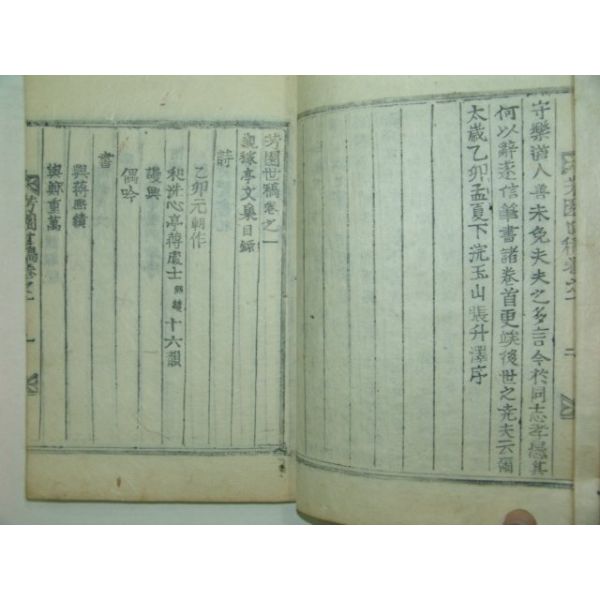 守樂道人善未免夫夫之多言今於同志孝愚其
何以辭遂信筆書諸卷首更竢後世之堯夫云爾
太歲乙卯孟夏下浣玉山張升澤序
芳園世稿卷之一
觀球亭文集目錄
詩
乙卯元朝作
和洗心亭蔣處士 熙績 十六韻
謾興
偶吟
書
與蔣熙績
與鄭重萬
芳園世稿卷之一
一